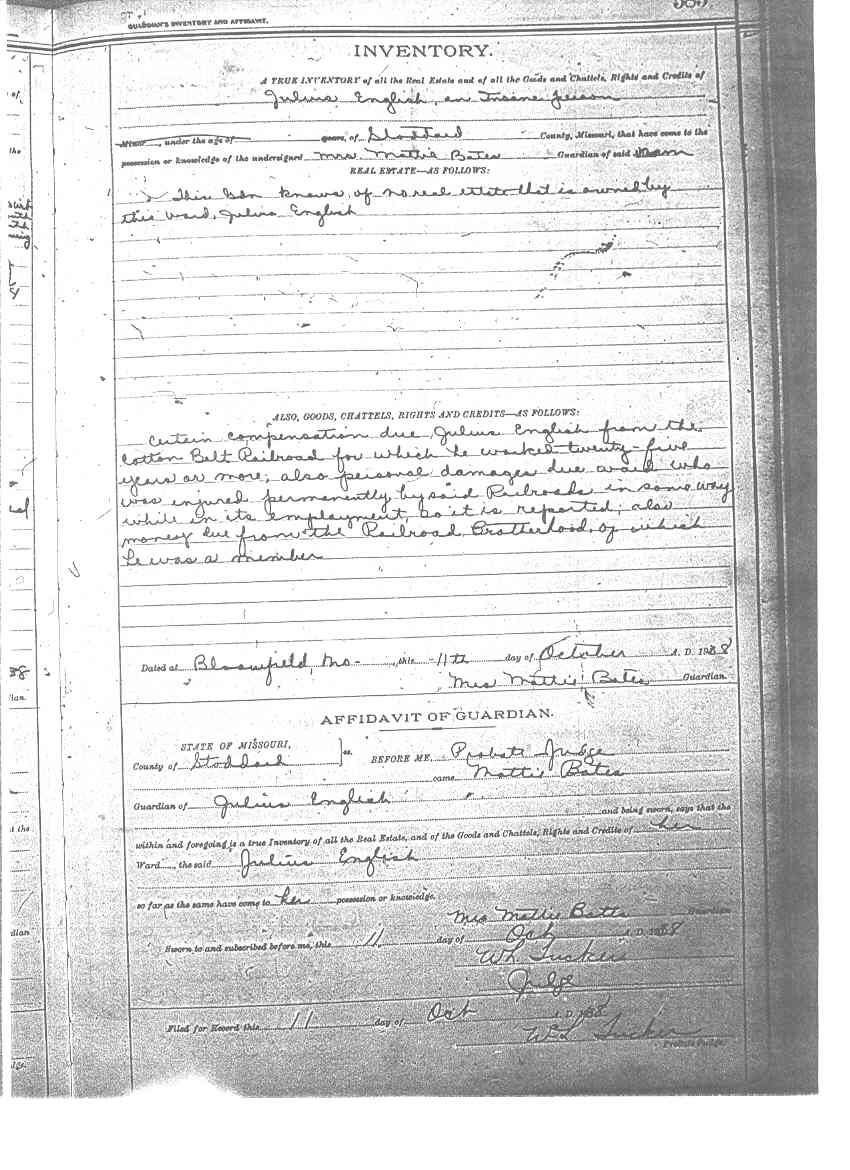 GUARDIAN'S INVENTORY AND AFFIDAVIT.
INVENTORY.
A TRUE INVENTORY of all the Real Estate and of all the Goods and Chattels, Rights and Credits of
Julius English, an Insane person
Minor, under the age of years, of Stoddard County, Missouri, that have come to the
possession or knowledge of the undersigned Mrs. Mattie Bates Guardian of said
REAL ESTATE—AS FOLLOWS:
This Gdn knows of no real estate that is owned by
this ward, Julius English
ALSO, GOODS, CHATTELS, RIGHTS AND CREDITS—AS FOLLOWS:
Certain compensation due Julius English from the
Cotton Belt Railroad for which he worked twenty-five
years or more; also personal damages due ward who
was injured permanently by said Railroads in some way
while in its employment, so it is reported; also
money due from the Railroad Brotherhood, of which
he was a member
Dated at Bloomfield, Mo- , this 11th day of October A. D. 1938
Mrs Mattie Bates Guardian.
AFFIDAVIT OF GUARDIAN.
STATE OF MISSOURI,
County of Stoddard } ss. BEFORE ME, Probate Judge
came Mattie Bates
Guardian of Julius English
and being sworn, says that the
within and foregoing is a true Inventory of all the Real Estate, and of the Goods and Chattels, Rights and Credits of her
Ward, the said Julius English
so far as the same have come to her possession or knowledge.
Mrs Mattie Bates Guardian
Sworn to and subscribed before me, this 11 day of Oct A. D. 1938
Judge
Filed for Record this 11 day of Oct A. D. 1938
Probate Judge.